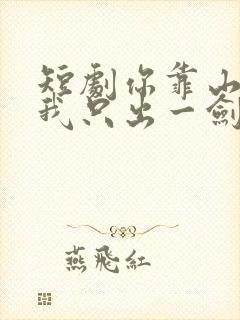 短劇你靠山
我只出一劍
燕飛紅